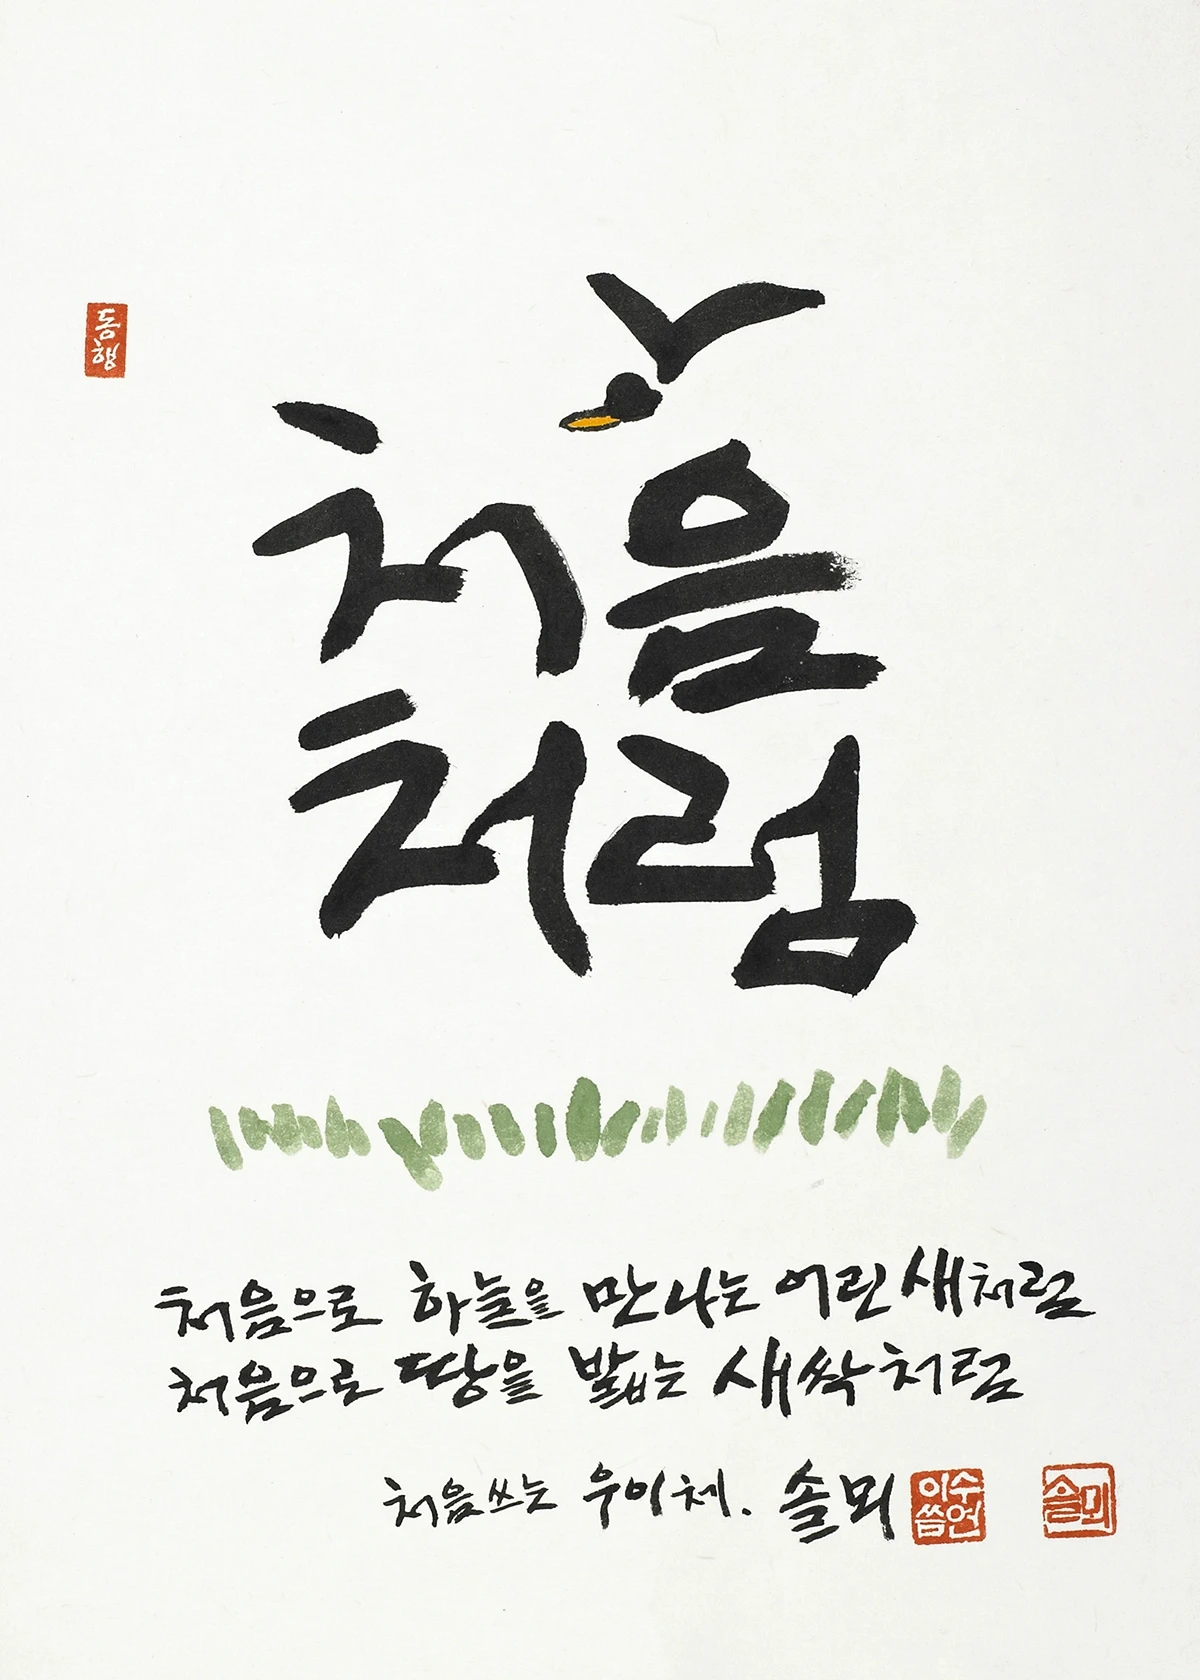 동행
처음
처럼
처음으로 하늘을 만나는 어린 새처럼
처음으로 땅을 밟는 새싹처럼
처음쓰는 우이체. 솔뫼
이수연씀
솔뫼